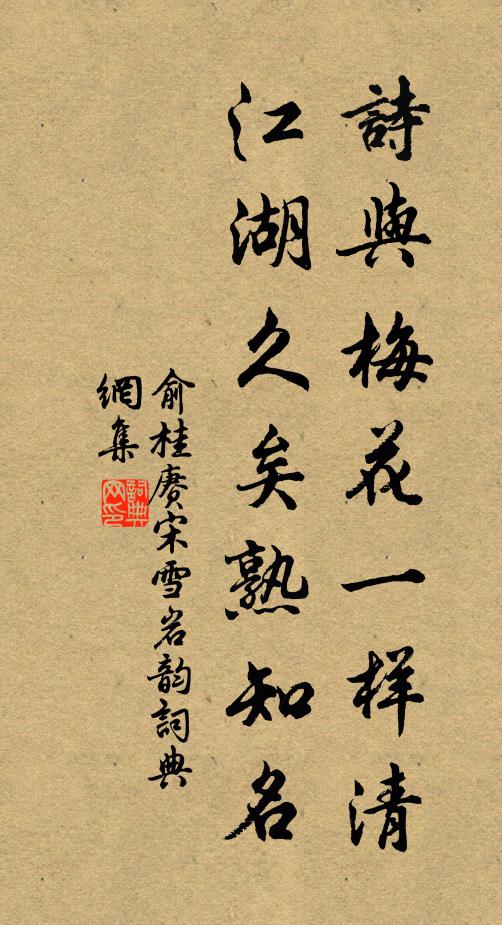 詩與梅花一样清
江湖久矣熟知名
俞桂賡宋雪岩韵詞典
網集
詞典網印